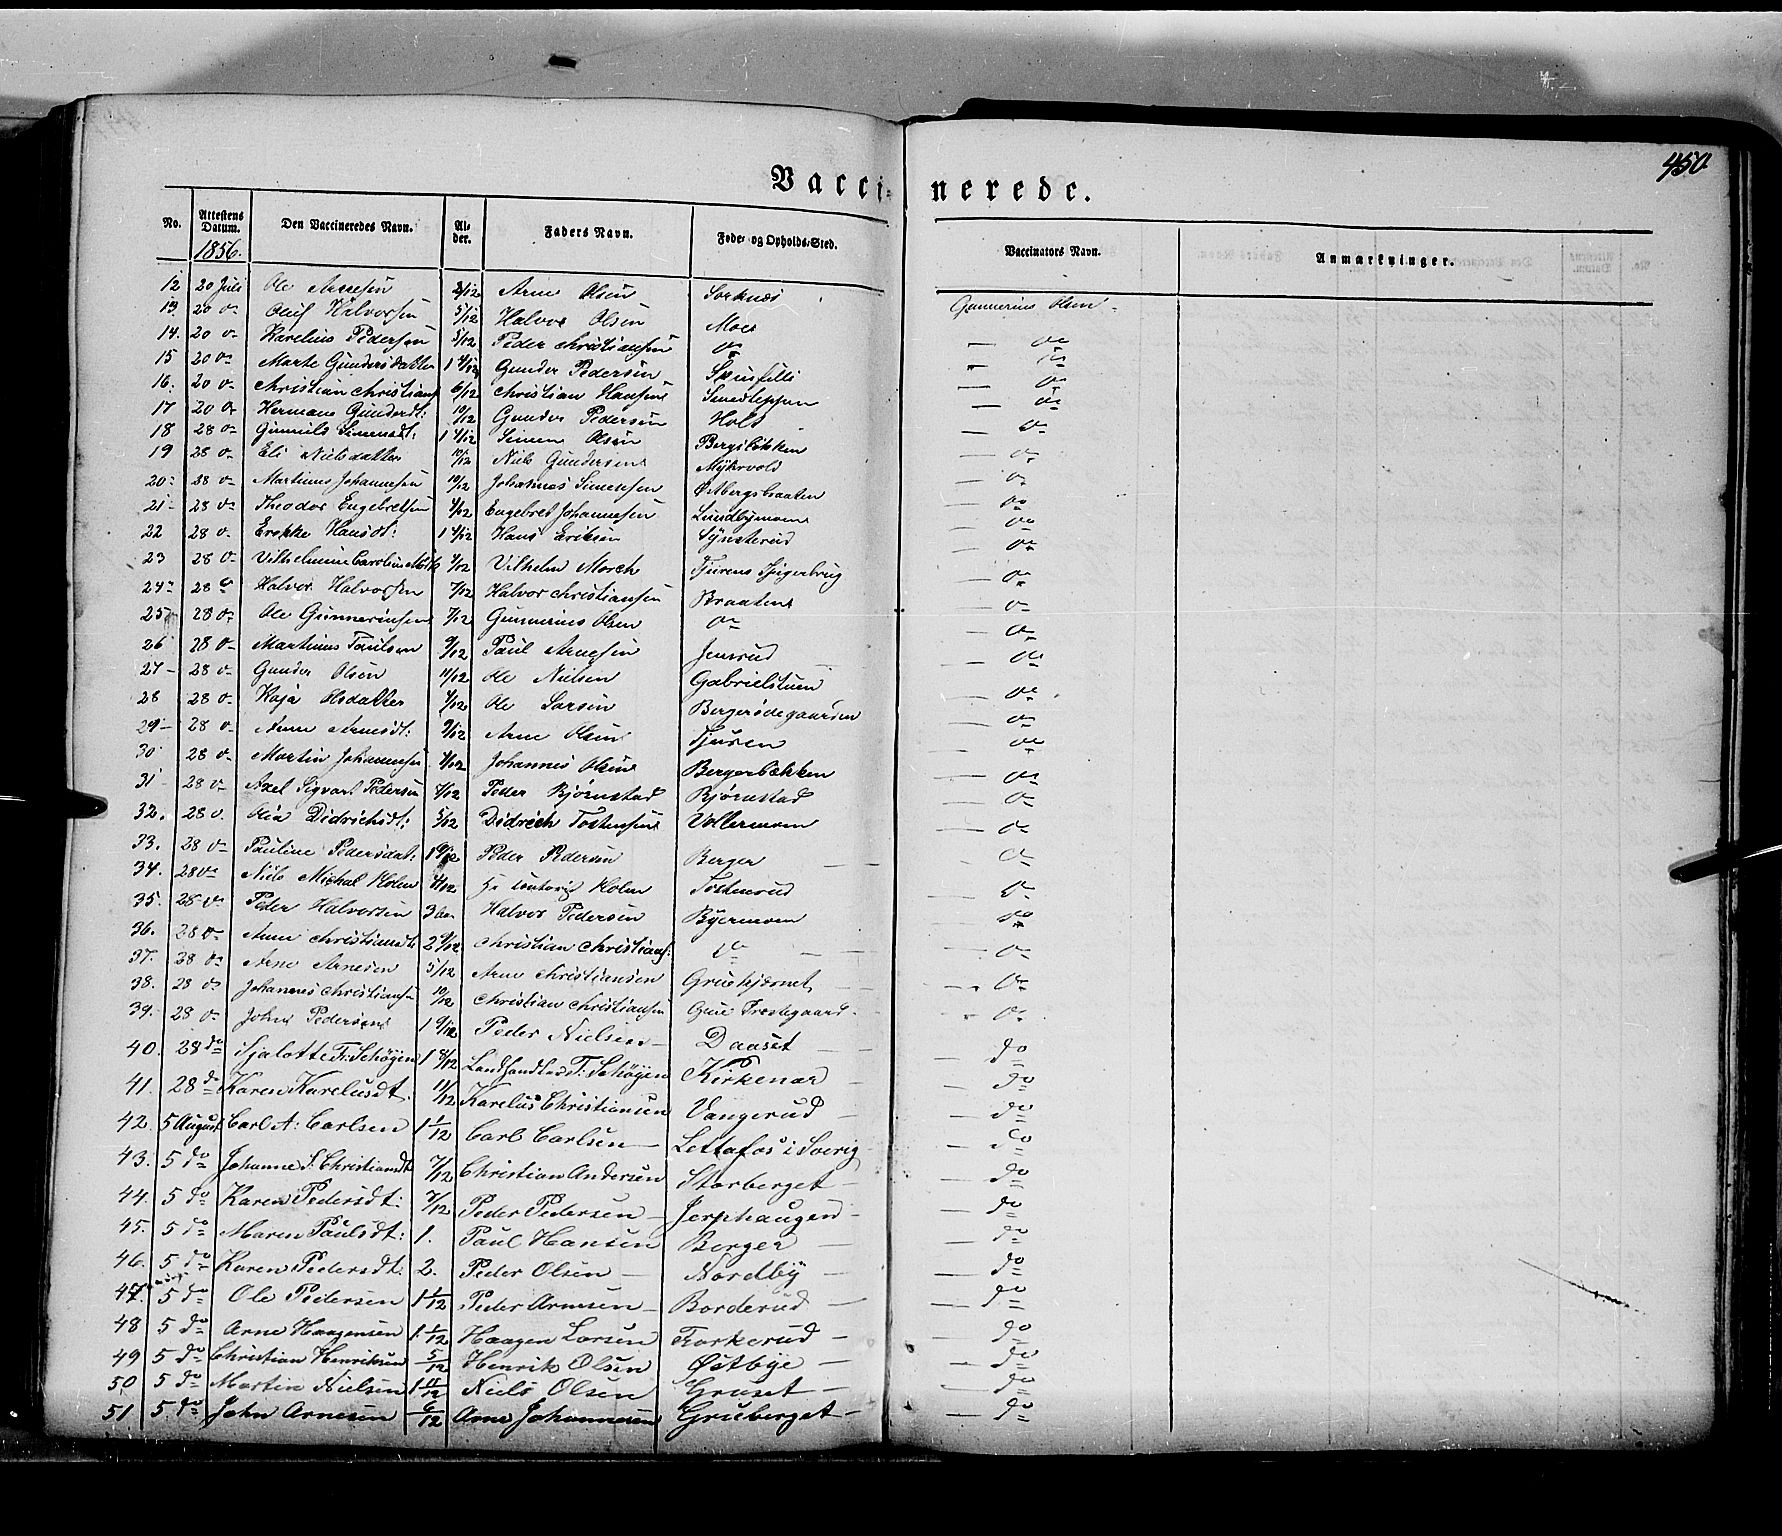 450
Vaccinerede.
No. Attestens Datum. Den Vaccineredes Navn. Alder. Faders Navn. Føde- og Opholds-Sted. Vaccinators Navn. Anmærkninger.
1856.
12 20 Juli Ole Arnesen 2/12 Arne Olsen Sorknæs Gunnerius Olsen
13. 20 do Oluf Halvorsen 5/12 Halvor Olsen Moen
14. 20 do Karelius Pedersen 5/12 Peder Christiansen do — do
15 20 do Marte Gundersdatter 1 Gunder Pedersen — do
16. 20 do Christian Christians 6/12 Christian Hansen — do
17 20 do Hermane Gunderdt: 10/12 Gunder Pedersen Holt — do
18 28 do Simensdt: 1 4/12 Simen Olsen Bergsbækken — do
19 28 do Eli Nielsdatter 10/12 Niels Gundersen Myhrvold — do
20 28 do Martinus Johannesen 10/12 Johannes Simensen Østbergsbraaten — do
21 28 do Theodor Engebretsen 4/12 Engebret Johannesen Lundbymoen — do
22 28 do Hansdt: 1 4/12 Hans Eriksen Synsterud — do
23 28 do Vilhelmine Caroline 7/12 Vilhelm Morch Tjurens — do
24 28 do Halvor Halvorsen 7/12 Halvor Christiansen Braaten — do
25 28 do Ole Gunneriusen 7/12 Gunnerius Olsen do — do
26 28 do Martinus Paulsen 9/12 Paul Arnesen Jensrud — do
27 28 do Gunder Olsen 11/12 Ole Nielsen Gabrielstuen — do
28 28 do Kaja Olsdatter 7/12 Ole Larsen Bergersødegaarden — do
29 28 do Anne Arnesdt: 9/12 Arne Olsen Tjuren — do
30 28 do Martin Johannesen 4/12 Johannes Olsen Bergerbækken — do
31 28 do Axel Sigvart Pedersen 4/12 Peder Bjørnstad Bjørnstad — do
32. 28 do Olia Didrichsdt: 5/12 Didrich Tostensen Vollermoen — do
33. 28 do Pauline Pedersdat: 1 9/12 Peder Pedersen Berger — do
34. 28 do Niels Michal Holm 4/12 Holm Tostenrud — do
35. 28 do Peder Halvorsen 3 Halvor Pedersen Byermoen — do
36. 28 do Anne Christiansdt 2 9/12 Christian Christians: do — do
37. 28 do Arne Arnesen 5/12 Arne Christiansen Gruetkjernet — do
38. 28 do Johannes Christiansen 10/12 Christian Christiansen Grue Præstegaard — do
39. 28 do John Pedersen 1 9/12 Peder Nielsen Daaset — do
40. 28 do Sjalotte Fr: Schøyen 1 8/12 Landhandler F: Schøyen Kirkenær — do
41. 28 do Karen Karelusdt. 11/12 Karelus Christiansen Vangerud — do
42. 5 August Carl A: Carlsen 1 1/12 Carl Carlsen Lettafos i Sverig — do
43. 5 do Johanne S. Christiansdt 7/12 Christian Andersen Storberget — do
44. 5 do Karen Pedersdt: 7/12 Peder Pedersen Jerphaugen — do
45. 5 do Maren Paulsdt: 1. Paul Hansen Berger — do
46. 5 do Karen Pedersdt: 2. Peder Olsen Nordby — do
47. 5 do Ole Pedersen 1 1/12 Peder Arnesen Borderud — do
48 5 do Arne Haagensen 1 1/12 Haagen Larsen Torkerud — do
49 5 do Christian Henriksen 5/12 Henrik Olsen Østbye — do
50 5 do Martin Nielsen 1 11/12 Niels Olsen Gruset — do
51 5 do John Arnesen 6/12 Arne Johannesen Grueberget — do